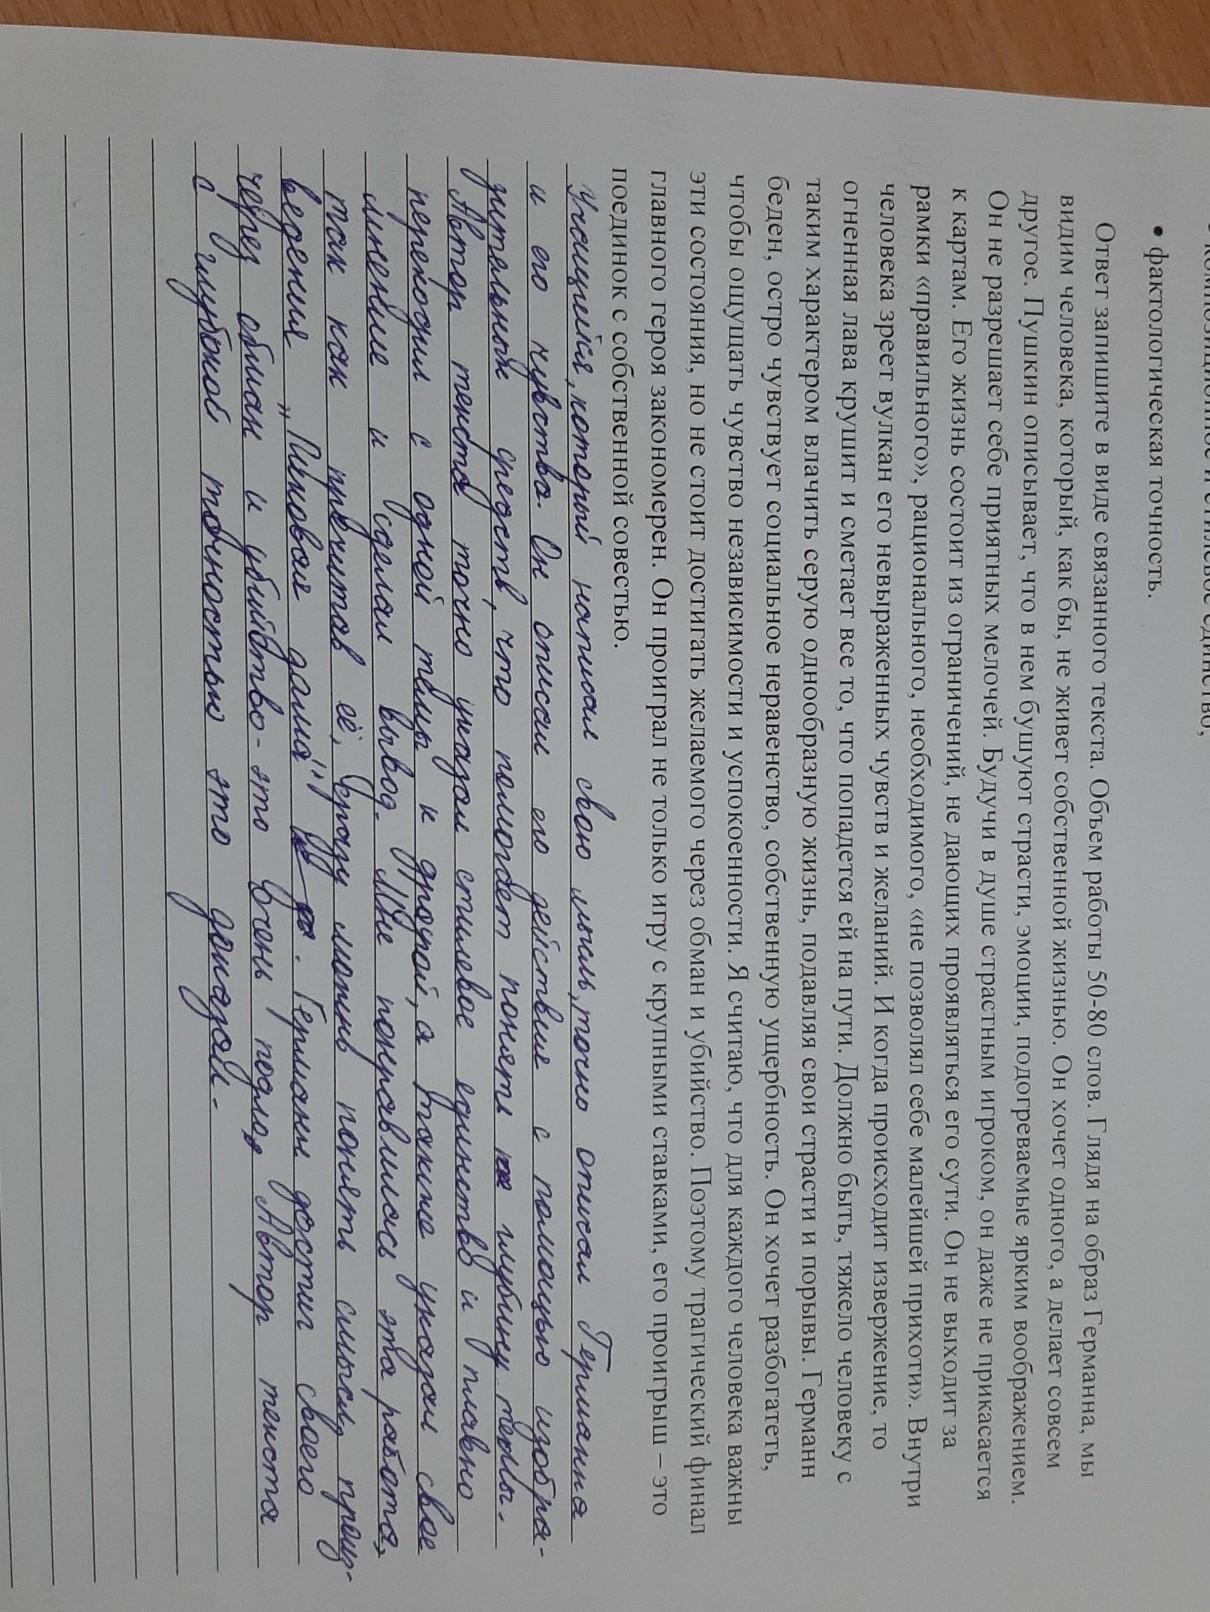 композиционное и стилевое единство,
• фактологическая точность.
Ответ запишите в виде связанного текста. Объем работы 50-80 слов. Глядя на образ Германна, мы
видим человека, который, как бы, не живет собственной жизнью. Он хочет одного, а делает совсем
другое. Пушкин описывает, что в нем бушуют страсти, эмоции, подогреваемые ярким воображением.
Он не разрешает себе приятных мелочей. Будучи в душе страстным игроком, он даже не прикасается
к картам. Его жизнь состоит из ограничений, не дающих проявляться его сути. Он не выходит за
рамки «правильного», рационального, необходимого, «не позволял себе малейшей прихоти». Внутри
человека зреет вулкан его невыраженных чувств и желаний. И когда происходит извержение, то
огненная лава крушит и сметает все то, что попадется ей на пути. Должно быть, тяжело человеку с
таким характером влачить серую однообразную жизнь, подавляя свои страсти и порывы. Германн
беден, остро чувствует социальное неравенство, собственную ущербность. Он хочет разбогатеть,
чтобы ощущать чувство независимости и успокоенности. Я считаю, что для каждого человека важны
эти состояния, но не стоит достигать желаемого через обман и убийство. Поэтому трагический финал
главного героя закономерен. Он проиграл не только игру с крупными ставками, его проигрыш – это
поединок с собственной совестью.
Учащийся, который написал свою мысль, точно описал Германна
и его чувства. Он описал его действия с помощью изобра-
зительных средств, что помогает понять глубину темы.
Автор текста точно указал стилевое единство и плавно
переходил с одной темы к другой, а также указал свое
мнение и сделал вывод. Мне понравилась эта работа,
так как прочитав её, сразу можно понять смысл произ-
ведения "Пиковая дама". Германн достиг своего
через обман и убийство - это очень подло, Автор текста
с глубокой точностью это доказал.